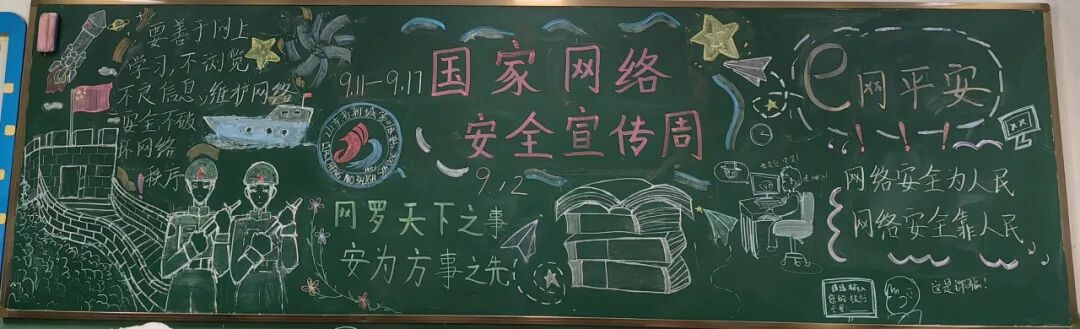 要善于网上
学习,不浏览
不良信息;维护网络
安全,不破
坏网络
秩序
9.11-9.17
国家网络
安全宣传周
9.12
网罗天下之事
安为方事之先
e网平安
网络安全为人民
网络安全靠人民
请输入
您的银行
这是诈骗!